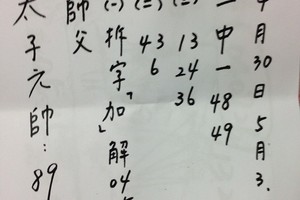 月30日5月3.
中一48 49
(三)13 24 36
(二)43 6
(一)拆字「加」解04
師父
太子元帥:89